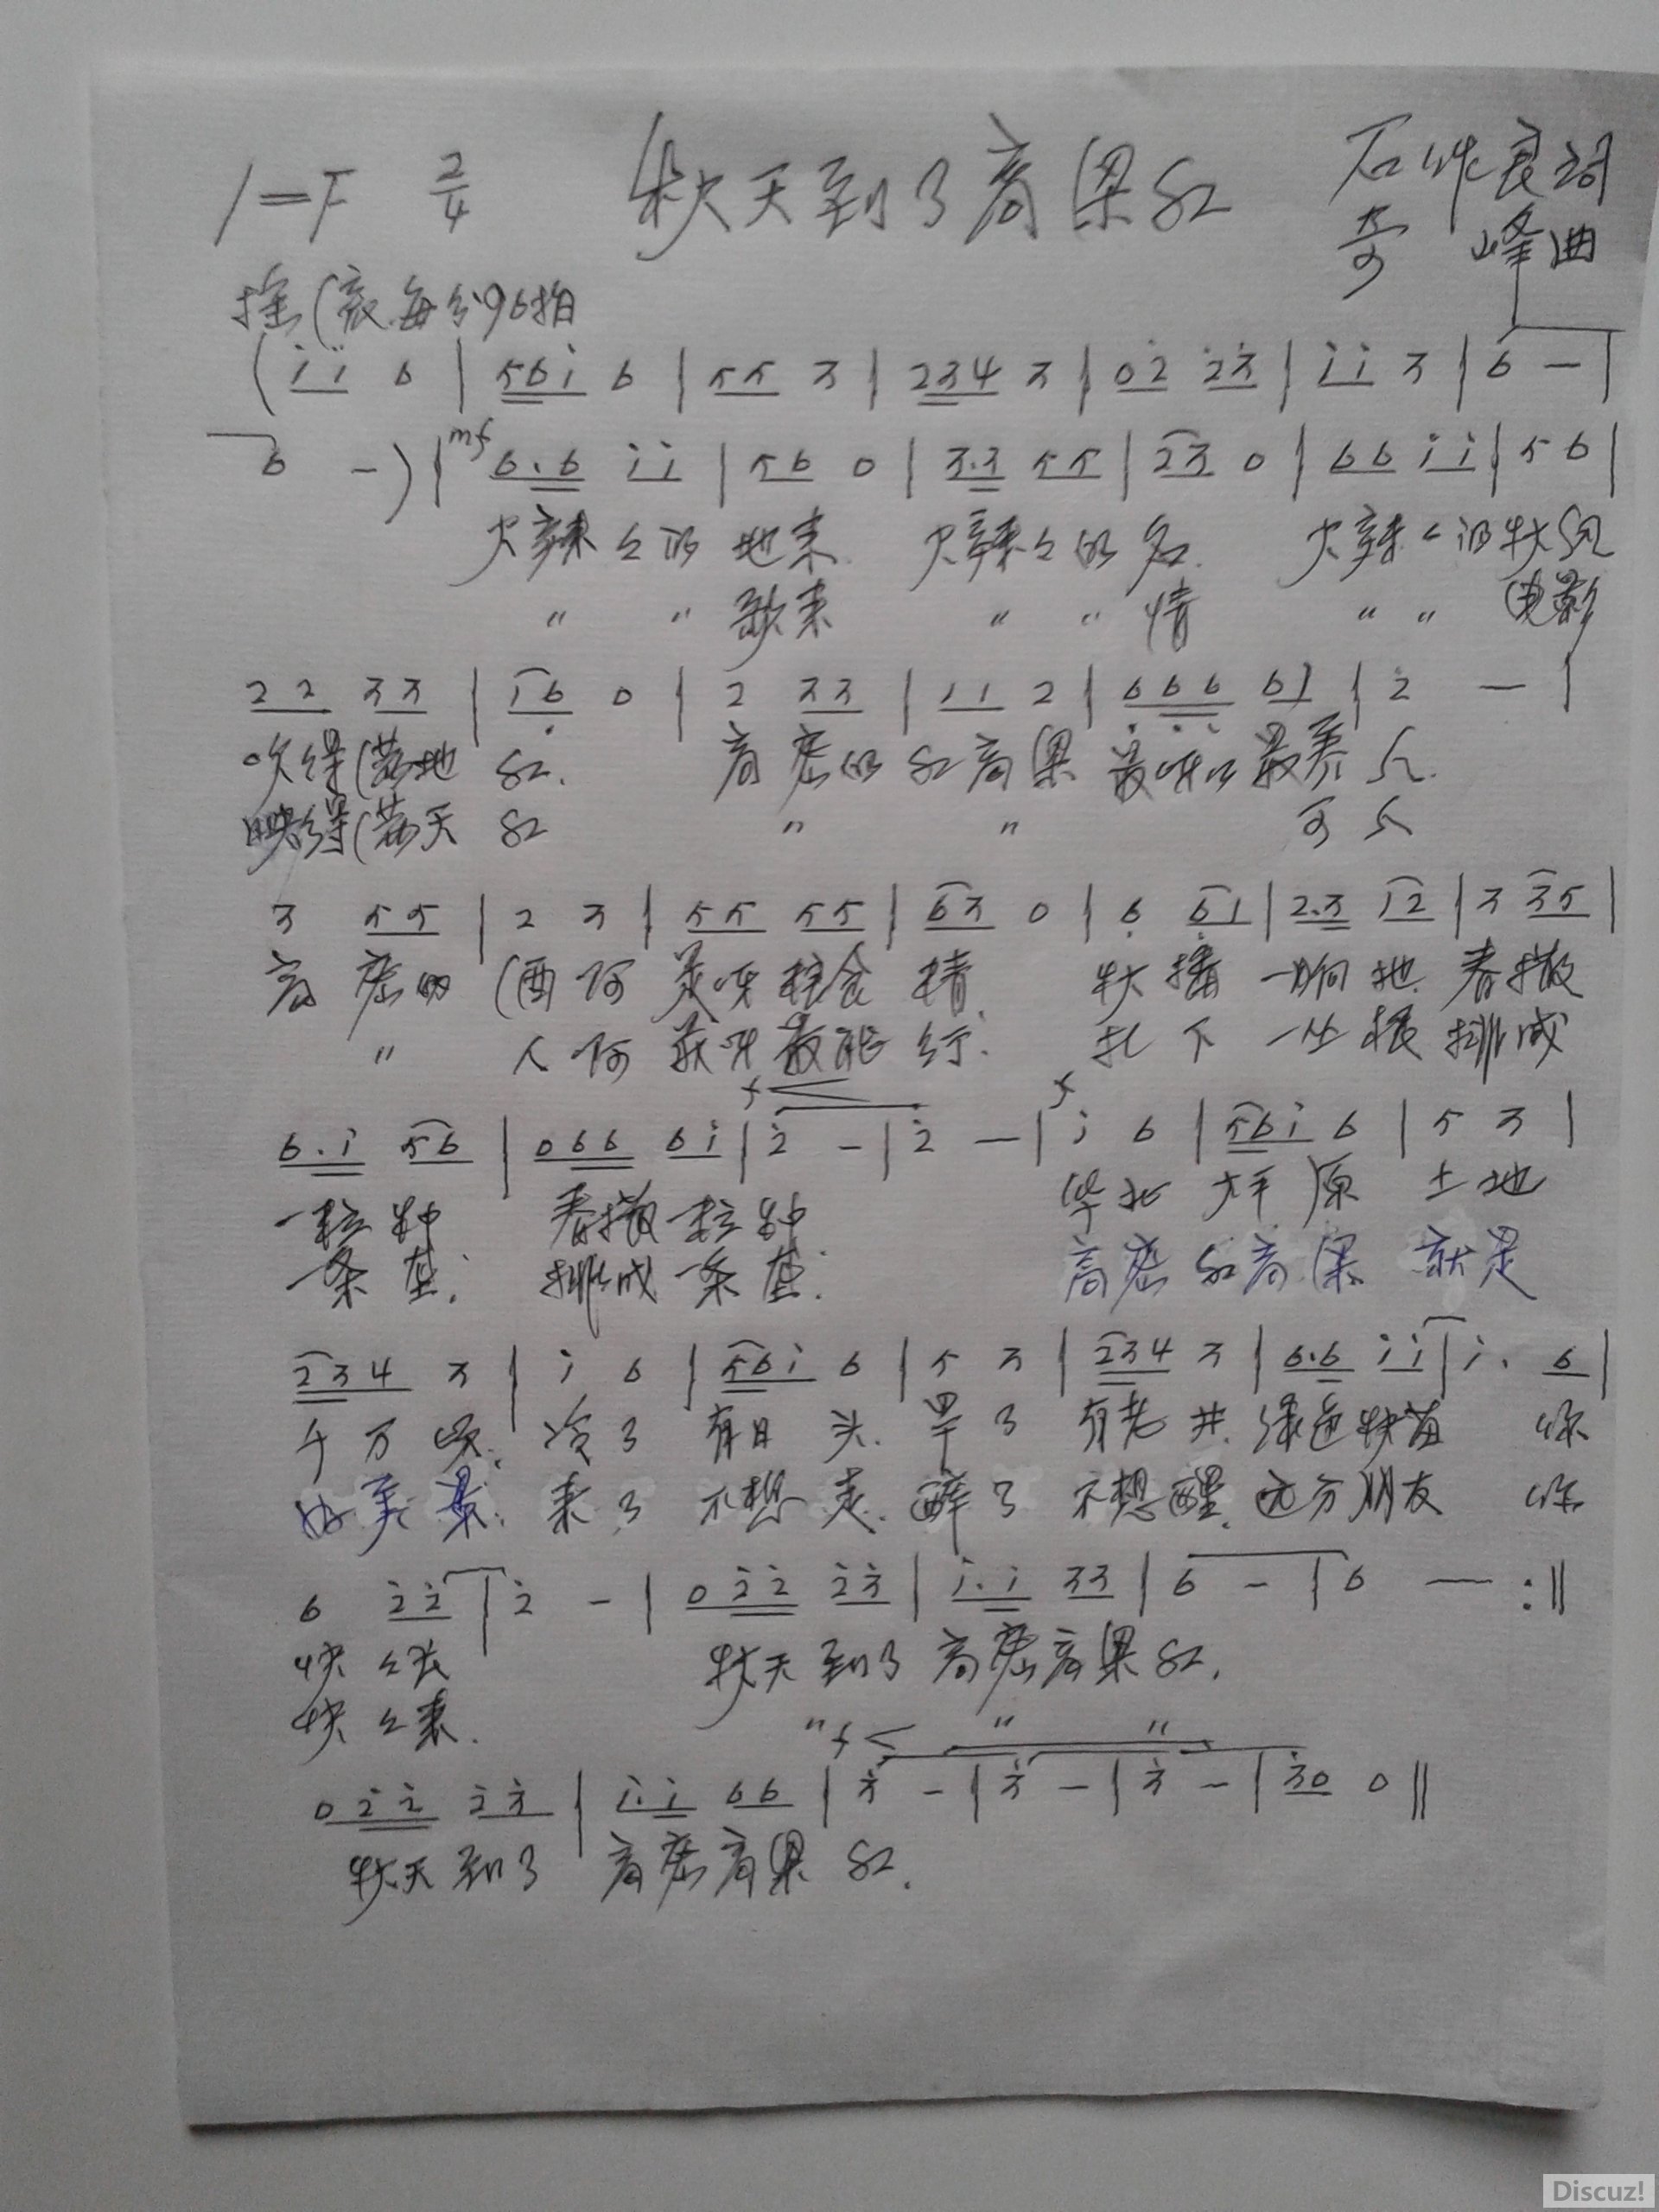 1=F 2/4 秋天到了高粱红 石作良词
奇 峰曲
摇滚 每分96拍
(i i 6 | 5 6 i 6 | 5 5 3 | 2 3 4 3 | 0 2 2 3 | i i 3 | 6 - |
6 -) | mf 6. 6 i i | 5 6 0 | 3. 3 5 5 | 2 3 0 | 6 6 i i | 5 6 |
火辣々的 地来 火辣々的名 火辣々的秋风
" " 歌来 " " 情 " " 电影
2 2 3 3 | 1 6 0 | 2 3 3 | 1 1 2 | 6 6 6 6 1 | 2 - |
吹得满地 红. 高密的红高粱 最 最养人.
映得满天 红 " " 可人
3 5 5 | 2 3 | 5 5 5 5 | 6 3 0 | 6 6 1 | 2. 3 1 2 | 3 3 5 |
高密的 酒啊 呀粮食 精. 秋播 一垧地 春撒
" 人啊 呀最能 行. 扎下 一丛根 排成
6. i 5 6 | 0 6 6 6 i | f 2 - | 2 - | f i 6 | 5 6 i 6 | 5 3 |
一粒种 春撒一粒种 华北 平原 土地
一条茎; 排成一条茎; 高密 红高粱 就是
2 3 4 3 | i 6 | 5 6 i 6 | 5 3 | 2 3 4 3 | 6. 6 i i | i. 6 |
千万顷; 冷了 有日头. 旱了 有老井. 绿色秧苗 你
好美景; 来了 不想走. 醉了 不想醒. 远方朋友 你
6 2 2 | 2 - | 0 2 2 2 3 | i. i 3 3 | 6 - | 6 — :||
快々长 秋天到了 高密高粱红.
快々来. " " "
f
0 2 2 2 3 | i. i 6 6 | 3 - | 3 - | 3 - | 3 0 0 ||
秋天到了 高密高粱 红.
Discuz!